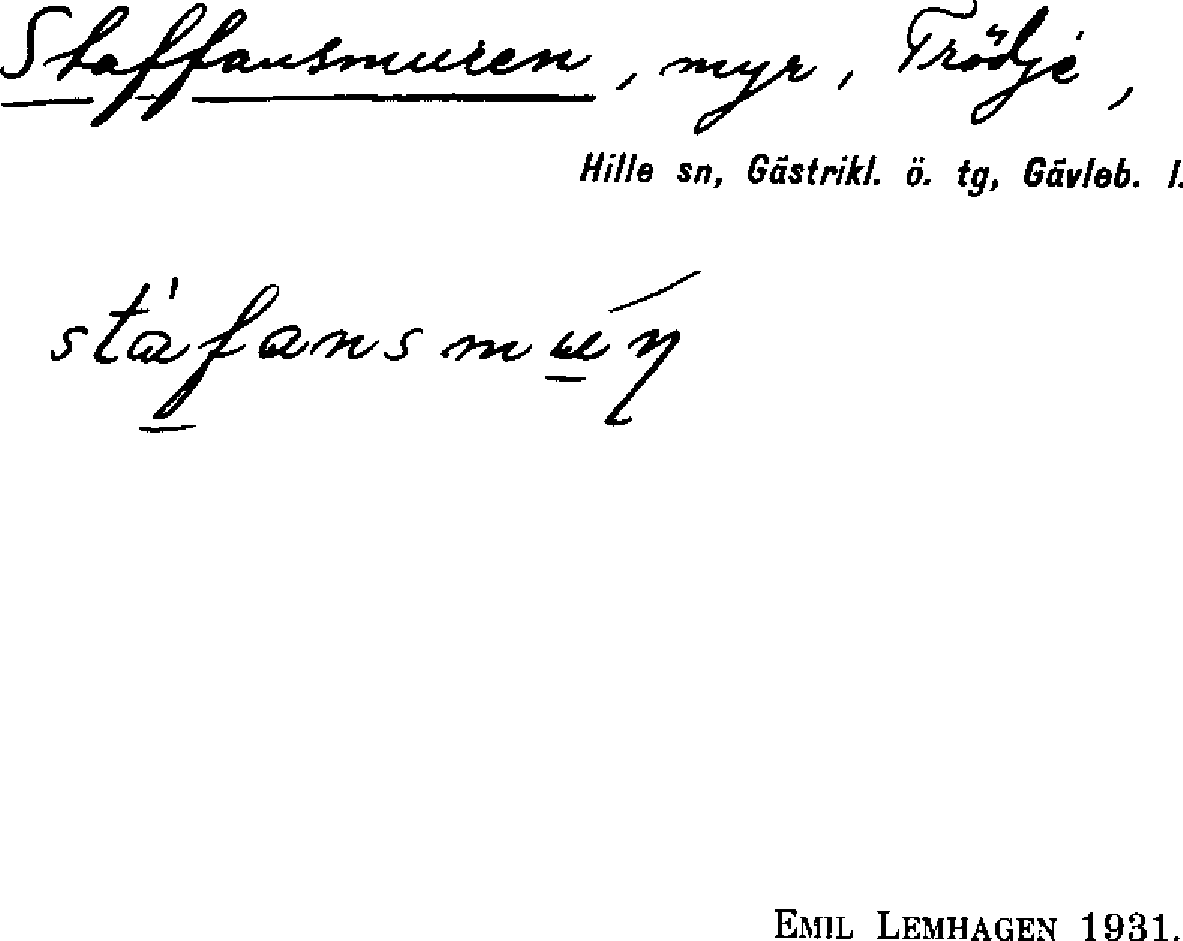 Staffansmuren, myr, Trödje,
Hille sn, Gästrikl. ö. tg, Gävleb. l.
stafansmuɳ
EMIL LEMHAGEN 1931.